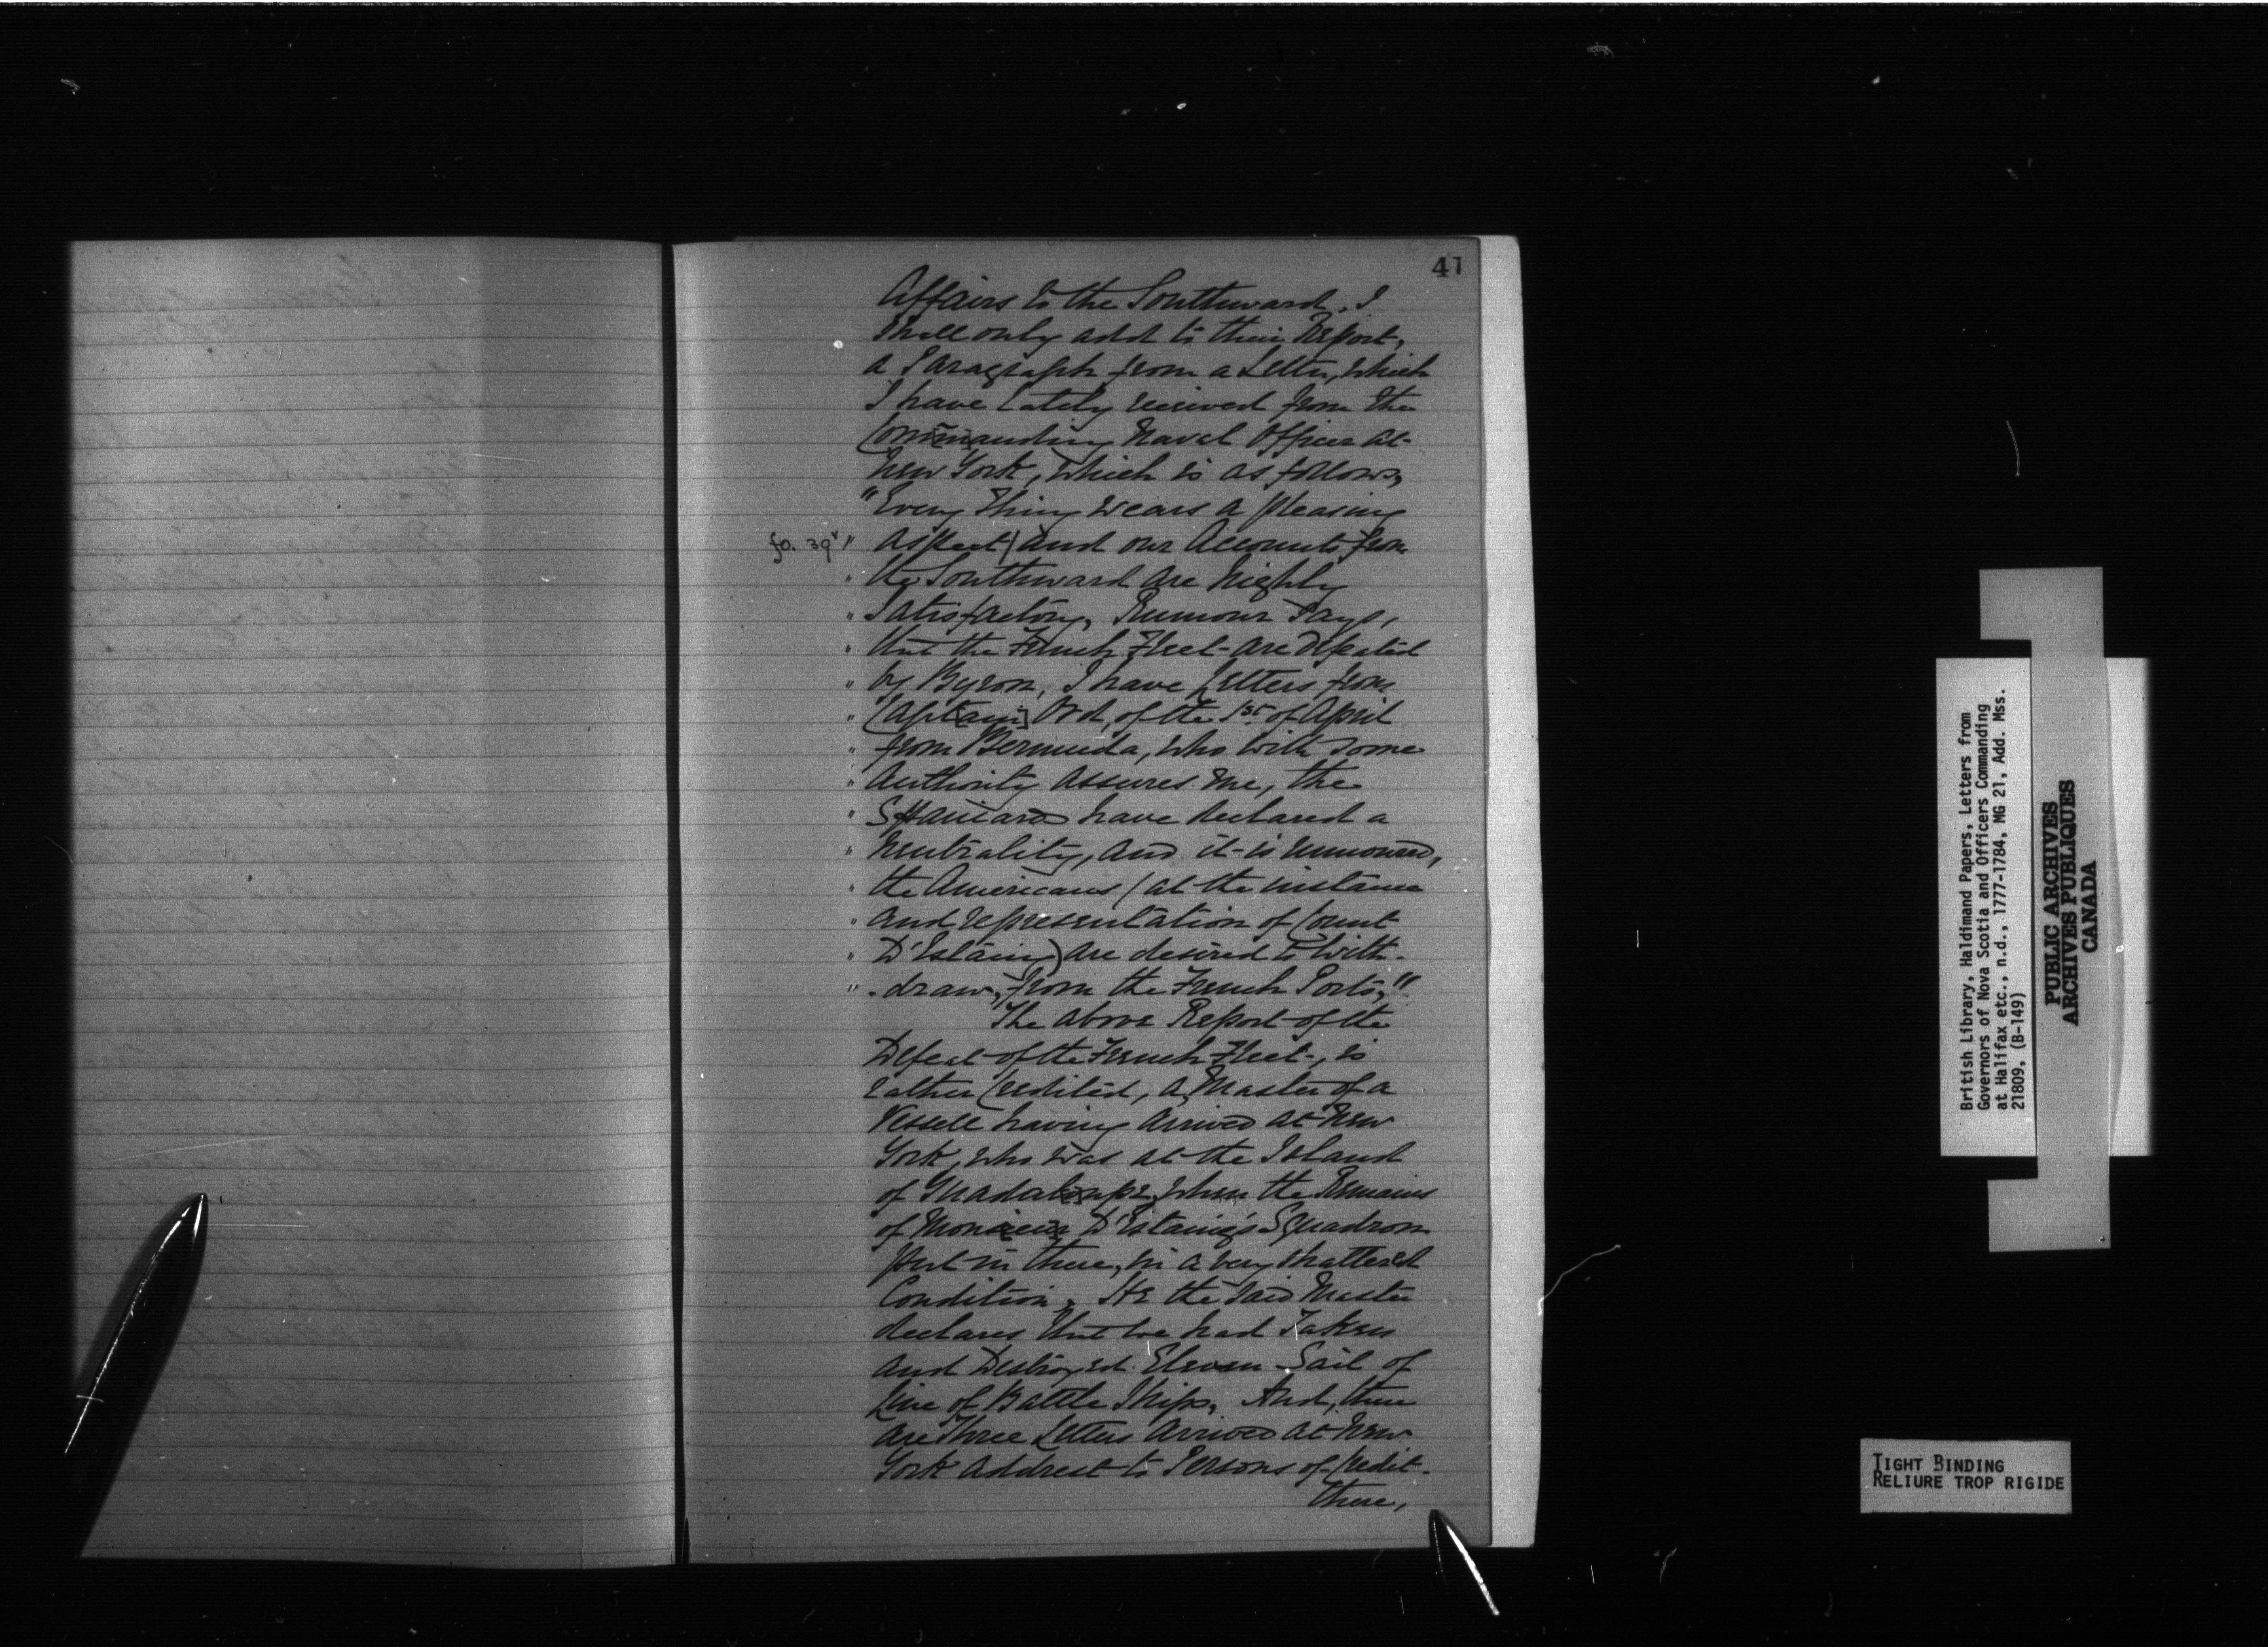 41
Affairs to the Southward, I
shall only add to their Report,
a Paragraph from a Letter, which
I have lately received from the
Commanding Naval Officer at
New York, which is as follows,
"Every thing wears a pleasing
fo. 39v " aspect / and our Accounts from
" the Southward are highly
" Satisfactory, Rumour Says,
" that the French Fleet are defeated
" by Byron, I have Letters from
" Capt[ain] Ord, of the 1st of April
" from Bermuda, who with some
" Authority assures me, the
" Spaniards have declared a
" Neutrality, and it is rumoured,
" the Americans (at the instance
" and representation of Count
" D'Estaing) are desired to With-
" -draw, from the French Ports,"
The above Report of the
Defeat of the French Fleet, is
rather Credited, a Master of a
Vessell having Arrived at New
York, who was at the Island
of Guadaloupe, when the Remains
of Monsieur D'Estaing's Squadron
put in there, in a very shattered
Condition, He the said Master
declares that we had Taken
and Destroyed Eleven Sail of
Line of Battle Ships, And, there
are Three Letters Arrived at New
York addrest to Persons of Credit
there,
British Library, Haldimand Papers, Letters from
Governors of Nova Scotia and Officers Commanding
at Halifax etc., n.d., 1777-1784, MG 21, Add. Mss.
21809, (B-149)
PUBLIC ARCHIVES
ARCHIVES PUBLIQUES
CANADA
TIGHT BINDING
RELIURE TROP RIGIDE